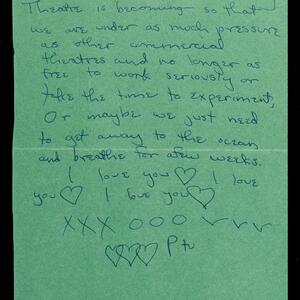 Theatre is becoming so that
we are under as much pressure
as other commercial
theatres and no longer as
free to work seriously or
take the time to experiment,
Or maybe we just need
to get away to the ocean
and breathe for a few weeks.
I love you ♡ I love
you ♡ I love you ♡
XXX OOO
♡♡♡